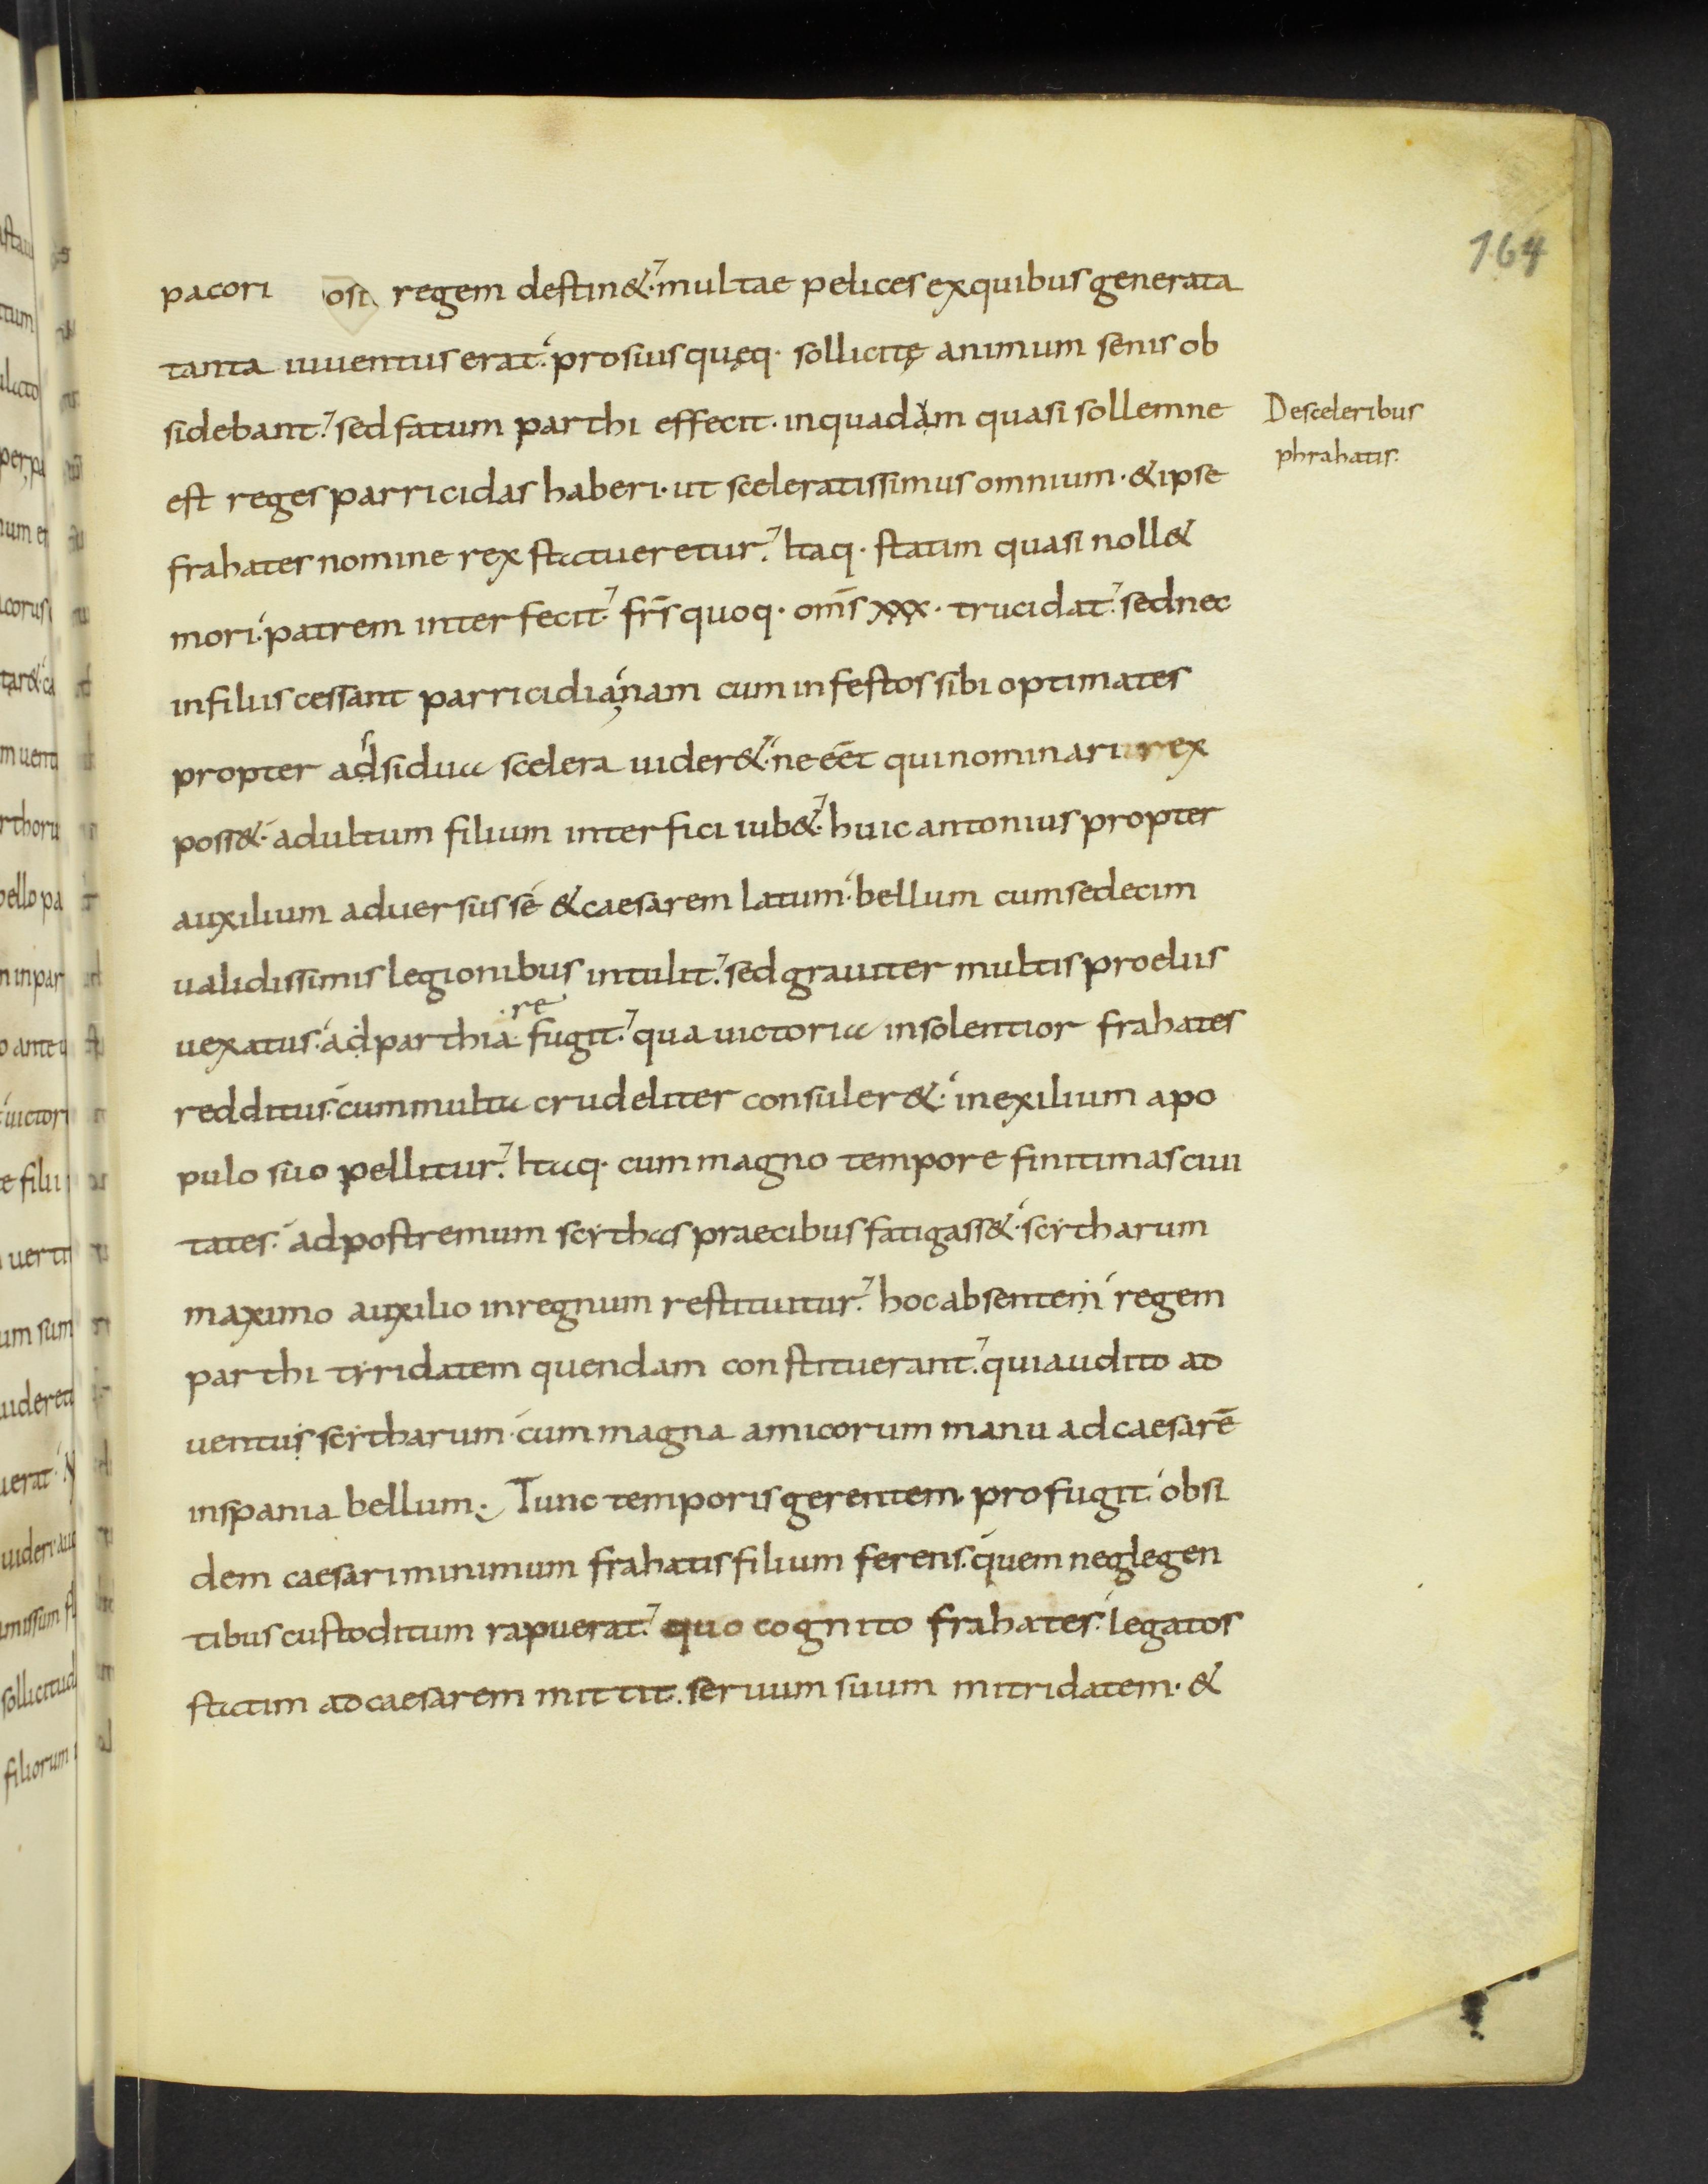 164
pacori osi regem destin&. multae pelices exquibus generata
tanta iuuentus erat. prosuis quęq. sollicitę animum senis ob
sidebant. sed fatum parthi effecit. inquadam quasi sollemne
est reges parricidas haberi. ut sceleratissimus omnium. & ipse
frahates nomine rex statueretur. Itaq. statim quasi noll&
mori. patrem interfecit. fr̄s quoq. om̄s xxx. trucidat. sednec
infiliis cessant parricidia, nam cum infestos sibi optimates
propter adsidua scelera uider&. ne eēt quinominari rex
poss&. adultum filium interfici iub&. huic antonius propter
auxilium aduersus sé & caesarem latum. bellum cumsedecim
ualidissimis legionibus intulit. sed grauiter multis proeliis
uexatus. ád parthia. refugit. qua uictoria insolentior frahates
redditus. cum multa crudeliter consuler&. inexilium apo
pulo suo pellitur. Itaq. cum magno tempore finitimas ciui
tates. ád postremum scẏthas praecibus fatigass&. scẏtharum
maximo auxilio inregnum restituitur. hoc absentem regem
parthi tẏridatem quendam constituerant. qui audito ad
uentus scẏtharum. cum magna amicorum manu ad caesarē
inspania bellum. Tunc temporis gerentem. profugit. obsi
dem caesari minimum frahatis filium ferens. quem neglegen
tibus custoditum rapuerat. quo cognito frahates. legatos
statim ad caesarem mittit. seruum suum mitridatem. &
Desceleribus
phrahatis.